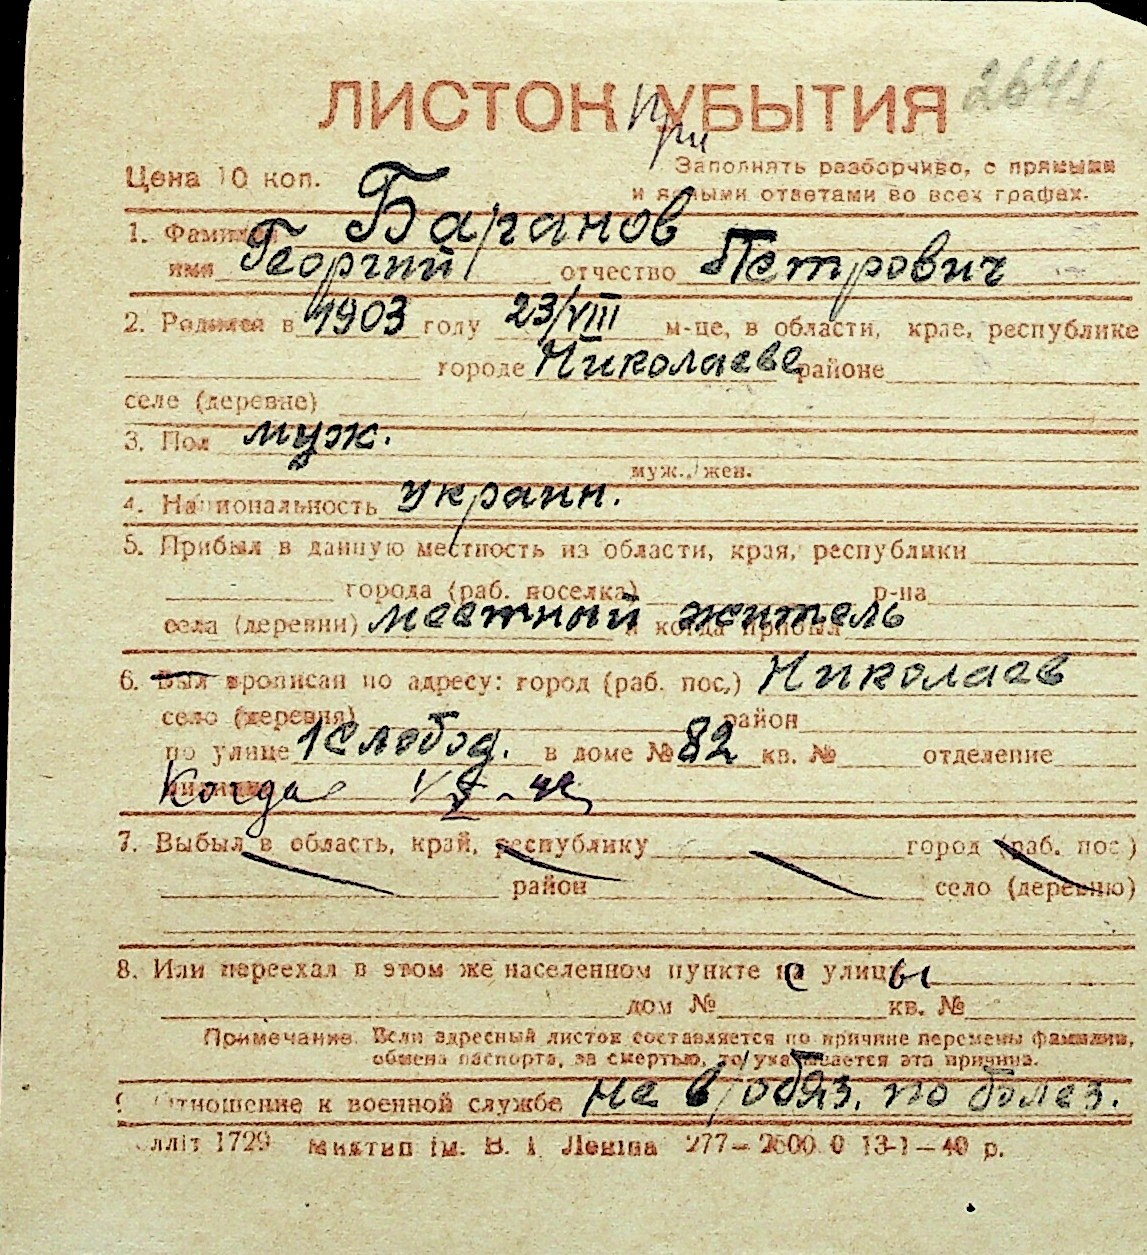 2641
ЛИСТОК УБЫТИЯ
При
Цена 10 коп.
Заполнять разборчиво, с прямыми
и ясными ответами во всех графах.
1. Фамилия Баранов
имя Георгий отчество Петрович
2. Родился в 1903 году 23/VIII м-це, в области, крае, республике
городе Николаеве районе
селе (деревне)
3. Пол муж.
муж., жен.
4. Национальность украин.
5. Прибыл в данную местность из области, края, республики
города (раб. поселка) р-на
села (деревни) местный житель и когда прибыл
6. Был прописан по адресу: город (раб. пос.) Николаев
село (деревня) район
по улице 1 Слобод. в доме № 82 кв. № отделение
Когда
7. Выбыл в область, край, республику город (раб. пос.)
район село (деревню)
8. Или переехал в этом же населенном пункте с улицы
дом № кв. №
Примечание. Если адресный листок составляется по причине перемены фамилии,
обмена паспорта, за смертью, то указывается эта причина.
9. Отношение к военной службе не в/обяз. по болез.
лліт 1729 Миктип ім. В. І. Леніна 277—2500 0 13-1—40 р.